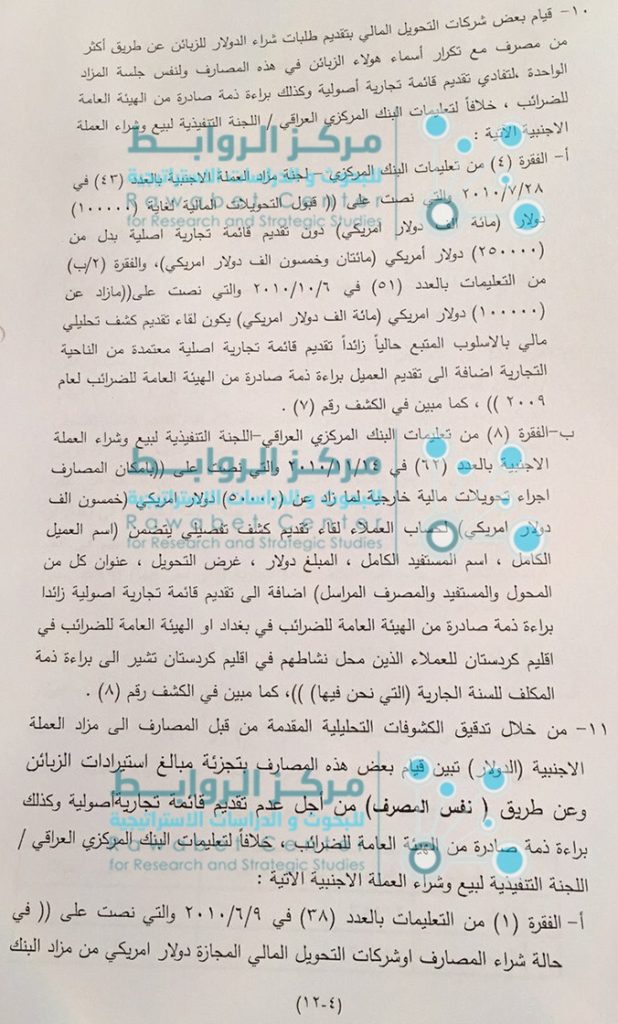 ١٠- قيام بعض شركات التحويل المالي بتقديم طلبات شراء الدولار للزبائن عن طريق أكثر
من مصرف مع تكرار أسماء هولاء الزبائن في هذه المصارف ولنفس جلسة المزاد
الواحدة لتفادي تقديم قائمة تجارية أصولية وكذلك براءة ذمة صادرة من الهيئة العامة
للضرائب ، خلافاً لتعليمات البنك المركزي العراقي / اللجنة التنفيذية لبيع وشراء العملة
الاجنبية الاتية :
مركز الروابط
للبحوث و الدراسات الاستراتيجية
Rawabet Center
for Research and Strategic Studies
أ- الفقرة (٤) من تعليمات البنك المركزي – لجنة مزاد العملة الاجنبية بالعدد (٤٣) في
٢٠١٠/٧/٢٨ والتي نصت على (( قبول التحويلات المالية لغاية (١٠٠٠٠٠)
دولار (مائة الف دولار امريكي) دون تقديم قائمة تجارية اصلية بدل من
(٢٥٠٠٠٠) دولار أمريكي (مائتان وخمسون الف دولار امريكي)، والفقرة (٢/ب)
من التعليمات بالعدد (٥١) في ٢٠١٠/١٠/٦ والتي نصت على((مازاد عن
(١٠٠٠٠٠) دولار امريكي (مائة الف دولار امريكي) يكون لقاء تقديم كشف تحليلي
مالي بالاسلوب المتبع حالياً زائداً تقديم قائمة تجارية اصلية معتمدة من الناحية
التجارية اضافة الى تقديم العميل براءة ذمة صادرة من الهيئة العامة للضرائب لعام
٢٠٠٩ )) ، كما مبين في الكشف رقم (٧) .
ب-الفقرة (٨) من تعليمات البنك المركزي العراقي-اللجنة التنفيذية لبيع وشراء العملة
الاجنبية بالعدد (٦٢) في ٢٠١٠/١١/١٤ والتي نصت على ((بامكان المصارف
اجراء تحويلات مالية خارجية لما زاد عن (٥٠٠٠٠) دولار امريكي (خمسون الف
دولار امريكي) لحساب العملاء لقاء تقديم كشف تفصيلي يتضمن (اسم العميل
مركز الروابط
للبحوث و الدراسات الاستراتيجية
Rawabet Center
for Research and Strategic Studies
الكامل ، اسم المستفيد الكامل ، المبلغ دولار ، غرض التحويل ، عنوان كل من
المحول والمستفيد والمصرف المراسل) اضافة الى تقديم قائمة تجارية اصولية زائدا
براءة ذمة صادرة من الهيئة العامة للضرائب في بغداد او الهيئة العامة للضرائب في
اقليم كردستان للعملاء الذين محل نشاطهم في اقليم كردستان تشير الى براءة ذمة
المكلف للسنة الجارية (التي نحن فيها) ))، كما مبين في الكشف رقم (٨) .
١١- من خلال تدقيق الكشوفات التحليلية المقدمة من قبل المصارف الى مزاد العملة
الاجنبية (الدولار) تبين قيام بعض هذه المصارف بتجزئة مبالغ استيرادات الزبائن
وعن طريق ( نفس المصرف) من أجل عدم تقديم قائمة تجاريةأصولية وكذلك
براءة ذمة صادرة من الهيئة العامة للضرائب ، خلافاً لتعليمات البنك المركزي العراقي /
مركز الروابط
للبحوث و الدراسات الاستراتيجية
Rawabet Center
for Research and Strategic Studies
اللجنة التنفيذية لبيع وشراء العملة الاجنبية الاتية :
أ- الفقرة (١) من التعليمات بالعدد (٣٨) في ٢٠١٠/٦/٩ والتي نصت على (( في
حالة شراء المصارف اوشركات التحويل المالي المجازة دولار امريكي من مزاد البنك
(٤-١٢)